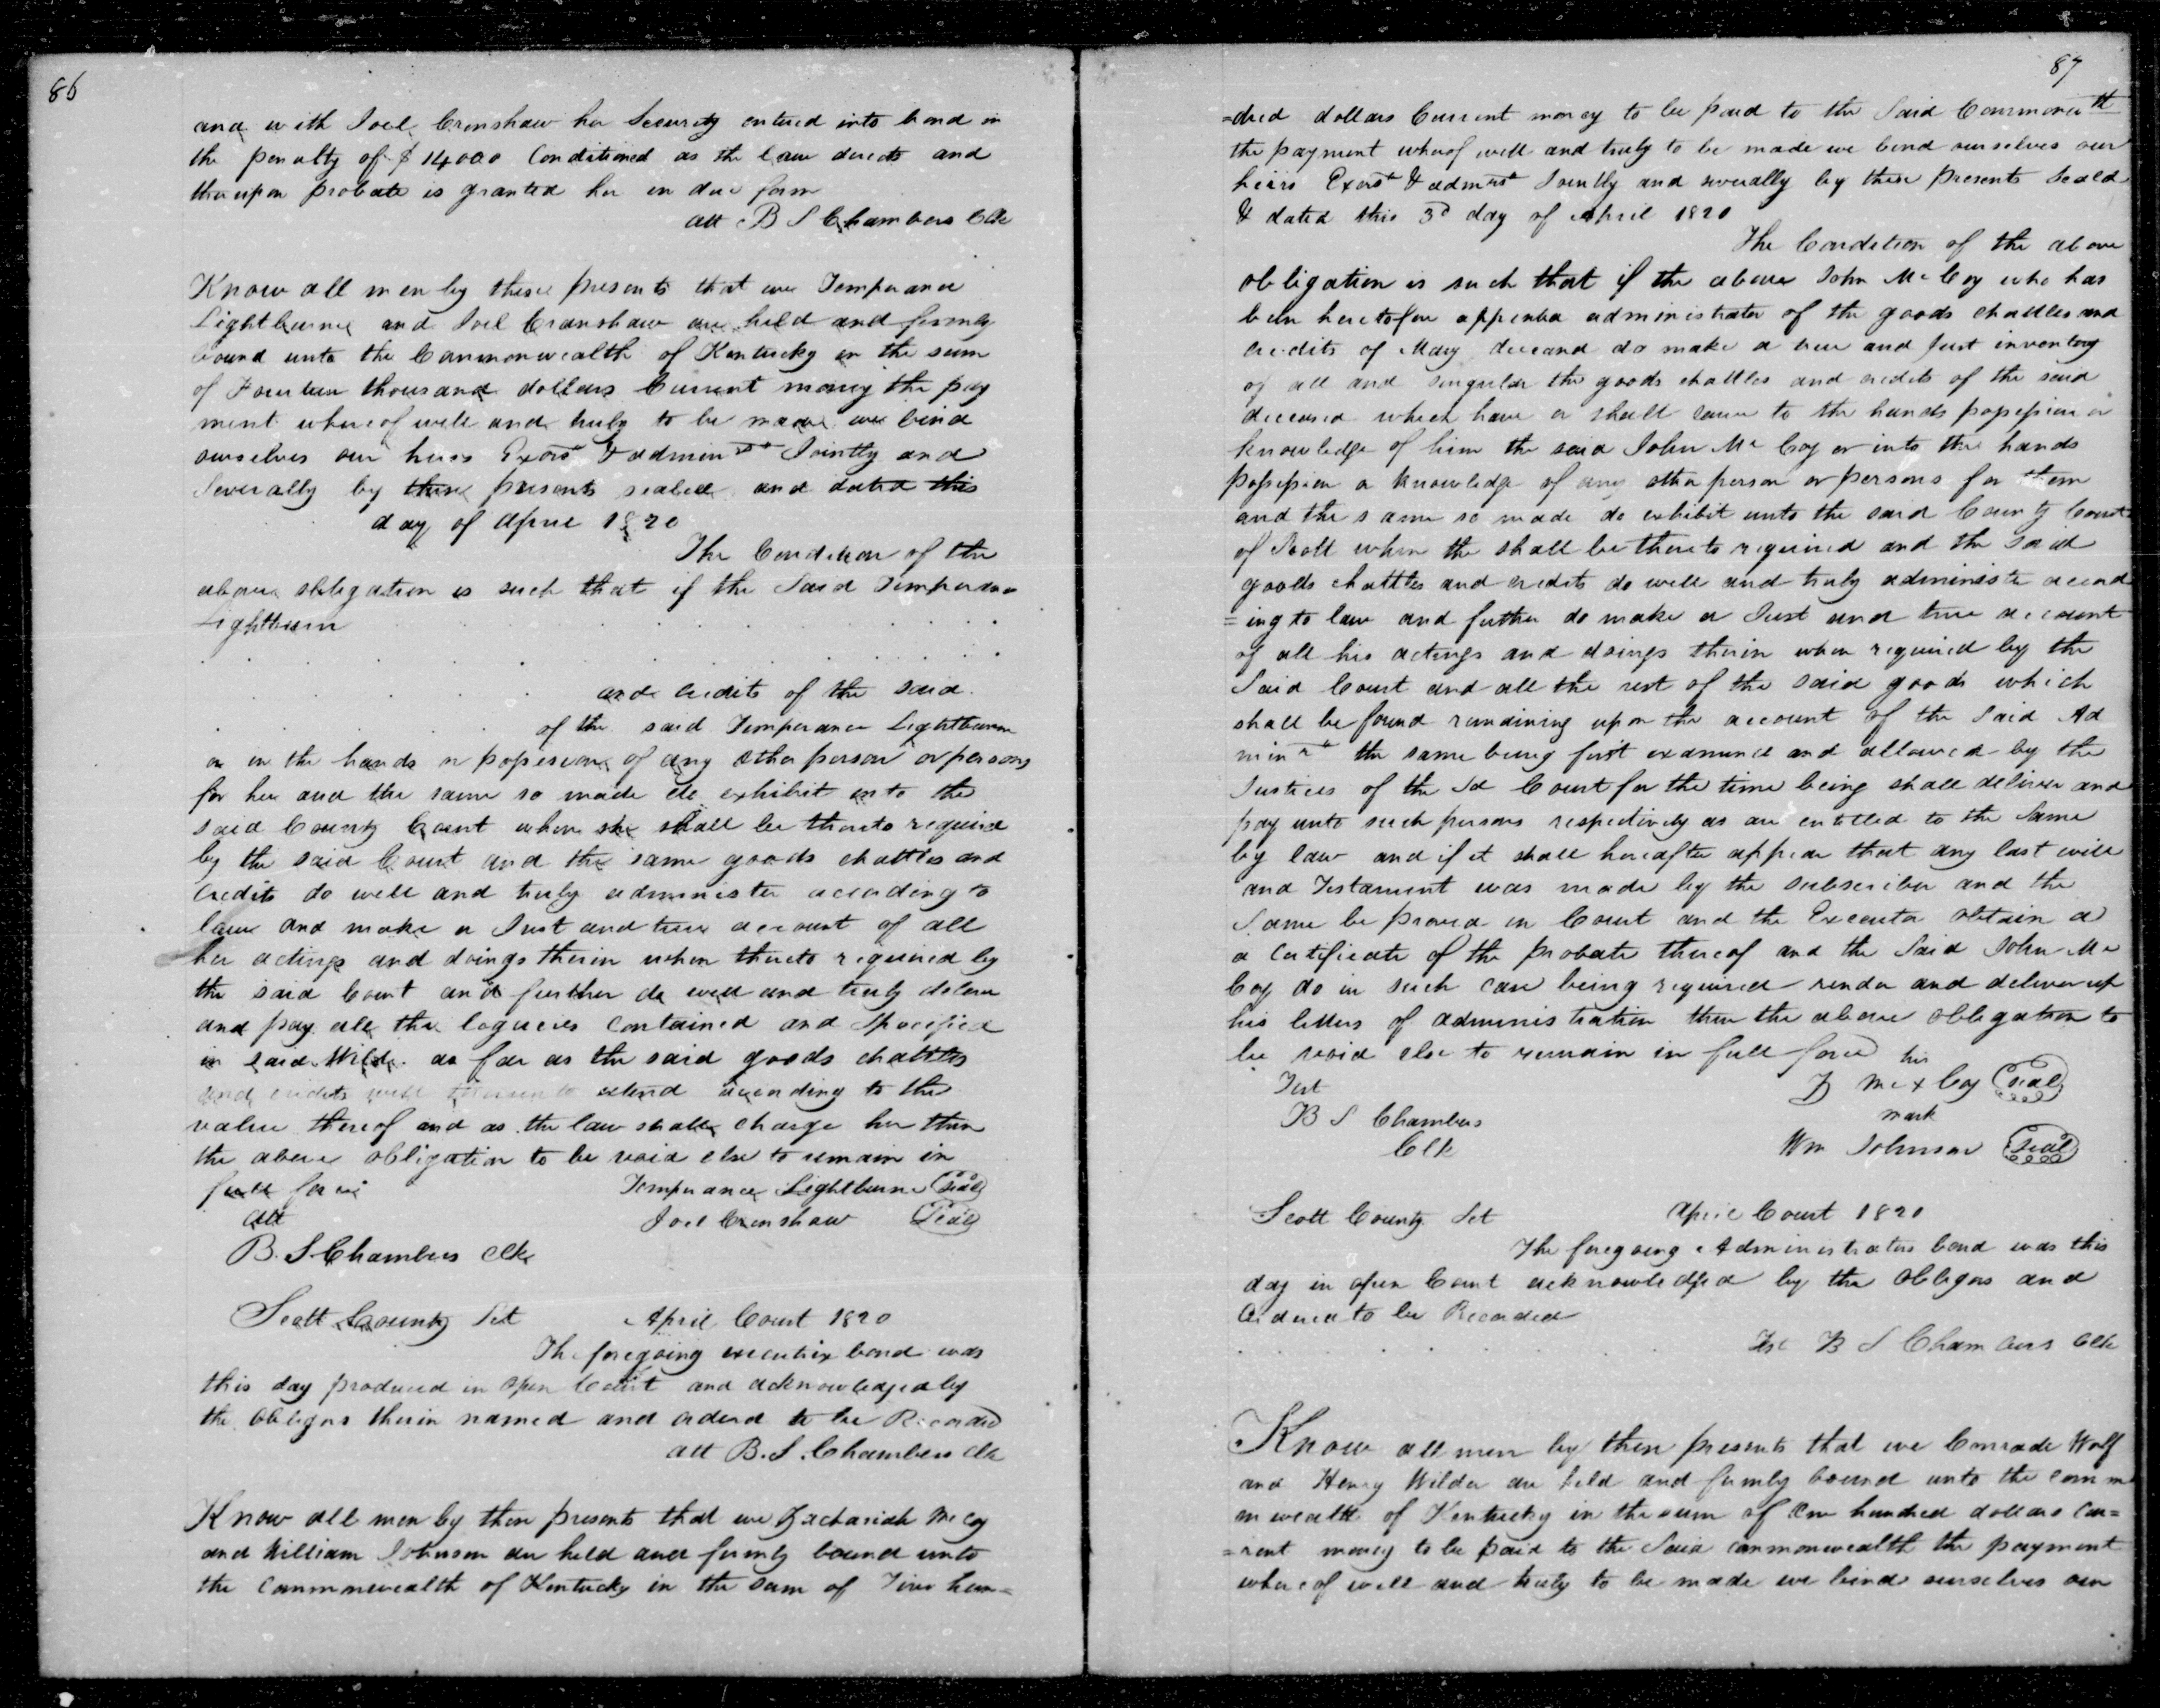 86
and with Joel Crenshaw her Security entered into bond in
the penalty of $14000 Conditioned as the law directs and
thereupon probate is granted her in due form
att B S Chambers Clk
Know all men by these presents that we Temperance
Lightburne and Joel Cranshaw are held and firmly
bound unto the Commonwealth of Kentucky in the sum
of Fourteen thousand dollars Current money the pay
ment whereof well and truly to be made we bind
ourselves our heirs Exors & admin rs Jointly and
Severally by these presents sealed and dated this
day of April 1820
The Condition of the
above obligation is such that if the Said Temperance
Lightburn
and credits of the said
of the said Temperance Lightburne
or in the hands or possession of any other person or persons
for her and the same so made do exhibit into the
said County Court when she shall be thereto required
by the said Court and the same goods chattles and
Credits do well and truly administer according to
law and make a Just and true account of all
her actings and doings therein when thereto required by
the said Court and further do well and truly deliver
and pay all the legacies contained and Specified
in said Will as far as the said goods chattles
and credits will thereunto extend according to the
value thereof and as the law shall charge her then
the above obligation to be void else to remain in
full force Temperance Lightburne Seal
att Joel Crenshaw Seal
B. S. Chambers Clk
Scott County Sct April Court 1820
The foregoing executrix bond was
this day produced in open Court and acknowledged by
the obligors therein named and ordered to be Recorded
att B. S. Chambers Clk
Know all men by these presents that we Zachariah McCoy
and William Johnson are held and firmly bound unto
the Commonwealth of Kentucky in the sum of hun=
87
=dred dollars Current money to be paid to the Said Commonwth
the payment whereof well and truly to be made we bind ourselves our
heirs Exors & admrs Jointly and severally by these presents Seald
& dated this 3d day of April 1820
The Condition of the above
obligation is such that if the above John McCoy who has
been heretofore administrator of the goods chattles and
credits of Mary do make a true and Just inventory
of all and singular the goods chattles and credits of the said
deceased which have or shall come to the hands possession or
knowledge of him the said John McCoy or into the hands
possession or knowledge of any other person or persons for them
and the same so made do exhibit unto the said County Court
of Scott when the shall be thereto required and the said
goods chattles and credits do well and truly administer accord
=ing to law and further do make a Just and true account
of all his actings and doings therein when required by the
Said Court and all the rest of the said goods which
shall be found remaining upon the account of the Said Ad
minrs the same being first examined and allowed by the
Justices of the Sd Court for the time being shall deliver and
pay unto such persons respectively as are entitled to the Same
by law and if it shall hereafter appear that any last will
and Testament was made by the subscriber and the
Same be proved in Court and the Executor obtain a
a Certificate of the probate thereof and the Said John Mc
Coy do in such case being required render and deliver up
his letters of administration then the above obligation to
be void else to remain in full force his
Test Z Mc x Coy Seal
B S Chambers mark
Clk Wm Johnson Seal
Scott County Sct April Court 1820
The foregoing Administrators bond was this
day in open Court acknowledged by the Obligors and
Ordered to be Recorded
Test B S Chambers Clk
Know all men by these presents that we Conrade Wolf
and Henry Wilder are held and firmly bound unto the comm
nwealth of Kentucky in the sum of One hundred dollars cur=
=rent money to be paid to the Said commonwealth the payment
whereof well and truly to be made we bind ourselves our